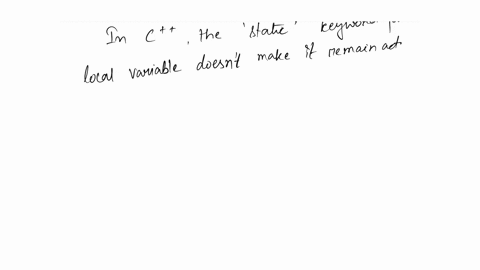 In C++, the 'static' keyword
local variable doesn't make it remain